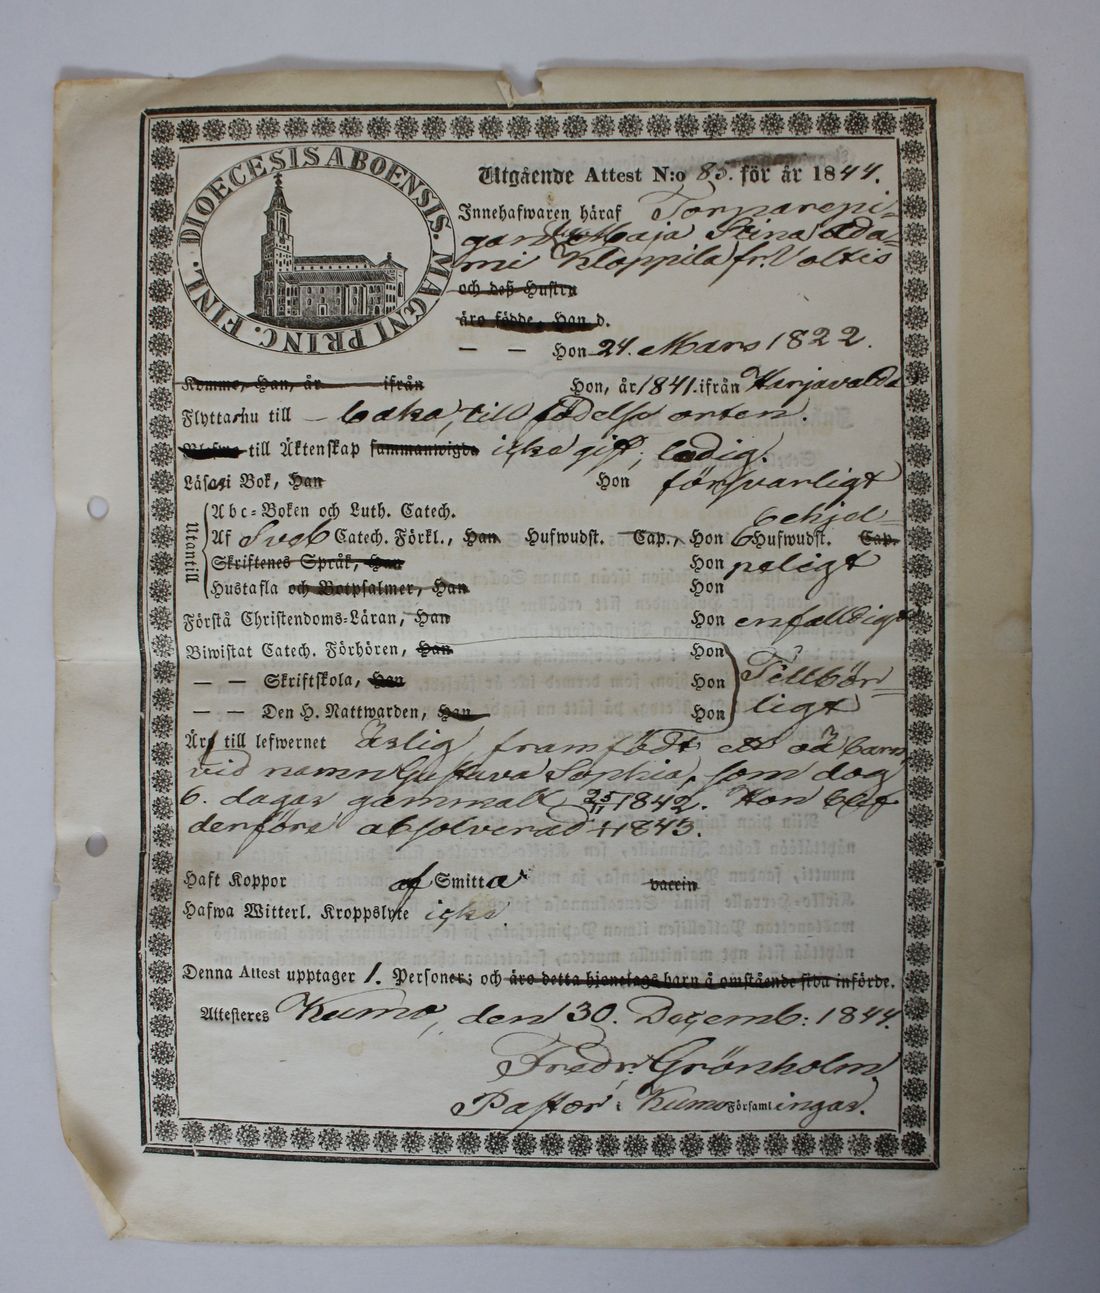 DIOECESIS ABOENSIS. MAGNI PRINC. FINL.
Utgående Attest N:o 85. för år 1844.
Innehafwaren häraf Torparepi-
gan Maja Stina Ada-
mi Kloppila fr. Voltis
och deß Hustru
äro födde, Han d.
— — Hon 24. Mars 1822.
Komme, Han, år ifrån Hon, år 1841. ifrån Harjavalda
Flyttar nu till baka, till födelse orten.
till Äktenskap sammanwigde icke gift, ledig.
Läser i Bok, Han Hon försvarligt
Utantill
Abc-Boken och Luth. Catech.
Af Sveb Catech. Förkl., Han Hufwudst. Cap., Hon 6 Hufwudst. Cap. behjel-
Skriftenes Språk, Han Hon peligt
Hustafla och Botpsalmer, Han Hon
Förstå Christendoms-Läran, Han Hon enfaldigt
Biwistat Catech. Förhören, Han Hon
— — Skriftskola, Han Hon Tillbör-
— — Den H. Nattwarden, Han Hon ligt
Är till lefwernet framfödt ett oä barn
vid namn Gustava Sophia, som dog
6. dagar gammalt 25/11 1842. Hon blef
derföre absolverad 1843.
Haft Koppor af Smitta vaccin
Hafwa Witterl. Kroppslyte icke
Denna Attest upptager 1. Personer; och äro detta hjonelags barn å omstående sida införde.
Attesteras Kumo, den 30. Decemb: 1844.
Fredr. Grönholm
Pastor i Kumo Församlingar.